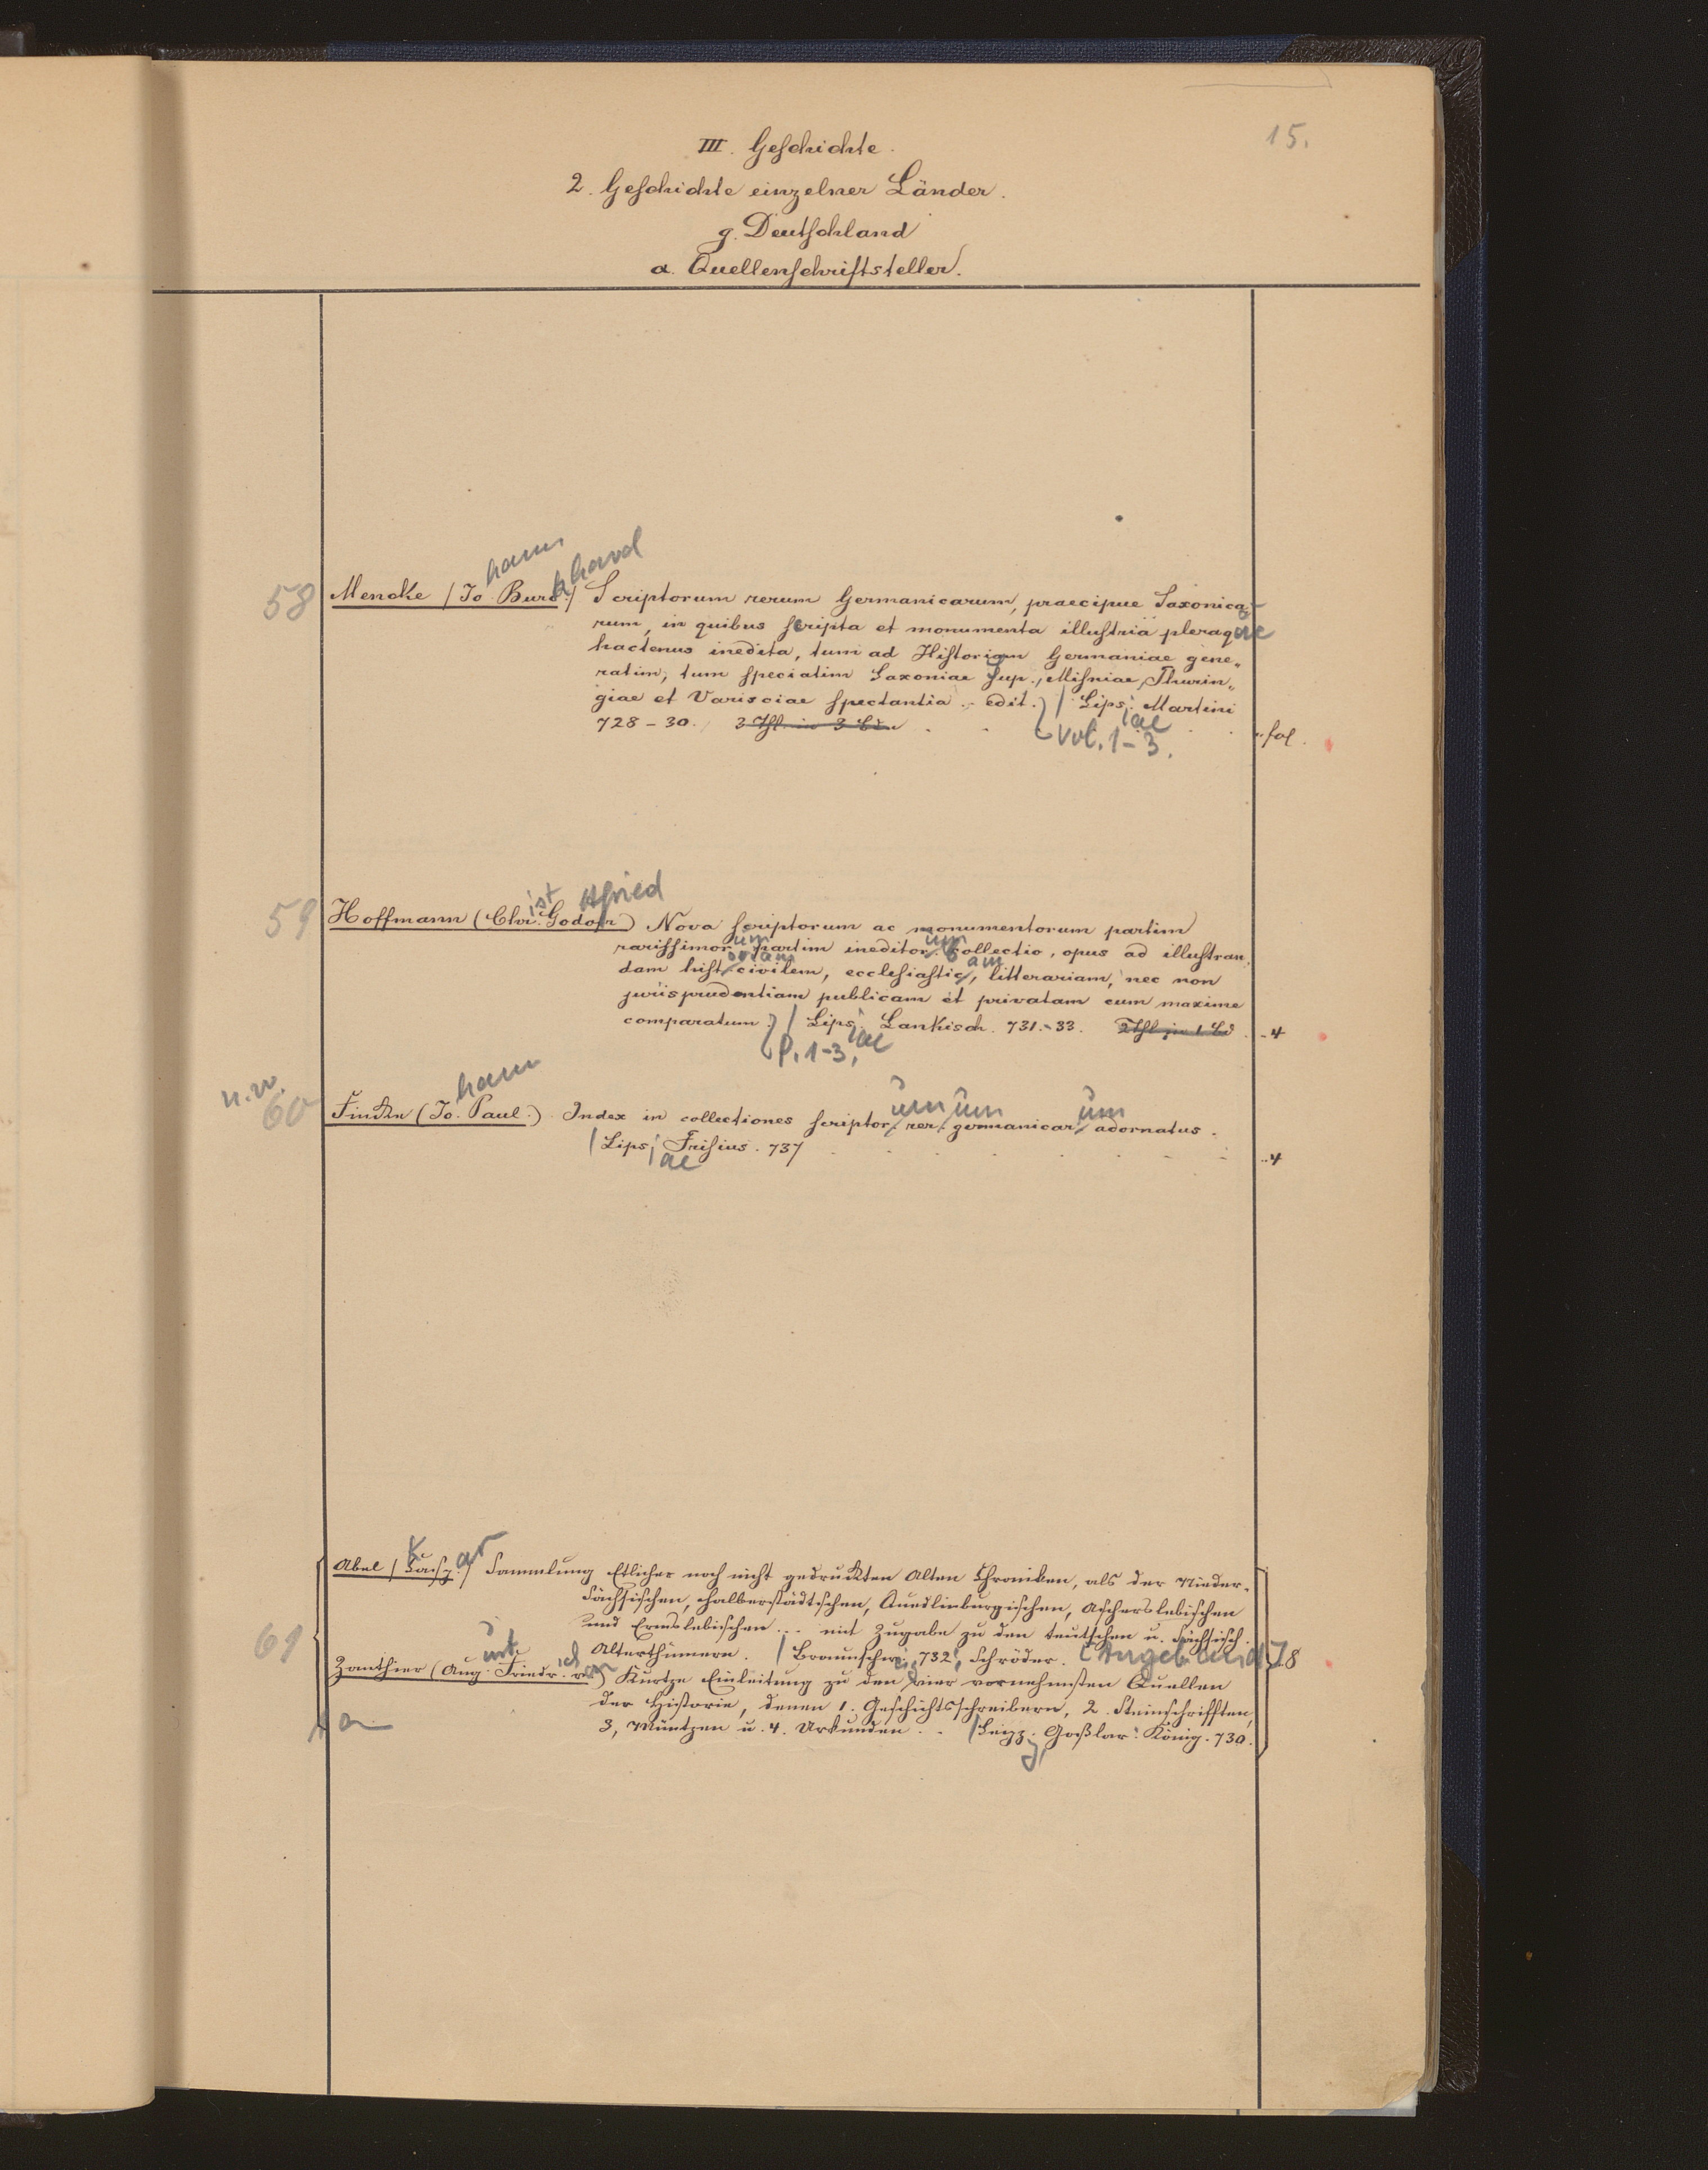 15.
III. Geschichte.
2. Geschichte einzelner Länder.
g. Deutschland
a. Quellenschriftsteller.
hann
khard
58 Mencke (Jo. Burc.) Scriptorum rerum Germanicarum, praecipue Saxonica-
rum, in quibus scripta et monumenta illustria pleraque
hactenus inedita, tum ad Historiam Germaniae gene-
ratim, tum speciatim Saxoniae sup., Misniae, Thurin-
giae et Varisciae spectantia .. edit. / Lips: Martini
iae
728-30. 3 Thl. in 3 Bdn fol.
Vol. 1-3.
ist tfried
59 Hoffmann (Chr. Godofr) Nova scriptorum ac monumentorum partim
um um
rarissimor. partim ineditor. collectio, opus ad illustran-
oriam am
dam hist. civilem, ecclesiastic, litterariam, nec non
jurisprudentiam publicam et privatam cum maxime
comparatum. / Lips: Lankisch. 731.-33. 2 Thl in 1 Bd 4
P. 1-3. iae
n.v. hann
um um um
60 Finckn (Jo. Paul.) Index in collectiones scriptor. rer. germanicar. adornatus.
/ Lips: Frisius. 737 4
iae
K ar
61 Abel / Casp./ Sammlung Etlicher noch nicht gedruckten Alten Chroniken, als der Nieder-
Sächsischen, Halberstädtischen, Quedlinburgischen, Aschers lebischen
und Ermslebischen ... mit Zugabe zu den teutschen u. Sächsisch.
Alterthümern. / Braunschw: 732: Schröder. [Angeb. 8
ust ich on
Zanthier (Aug. Friedr. v.) Kurtze Einleitung zu den vier vornehmsten Quellen
der Historie, denen 1. Geschichtsschreibern, 2. Steinschrifften,
a
3, Müntzen u. 4. Urkunden .. / Leipz. Goßlar: König. 730.